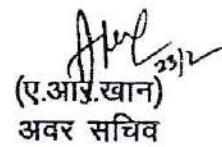 23/2
(ए.आर.खान)
अवर सचिव